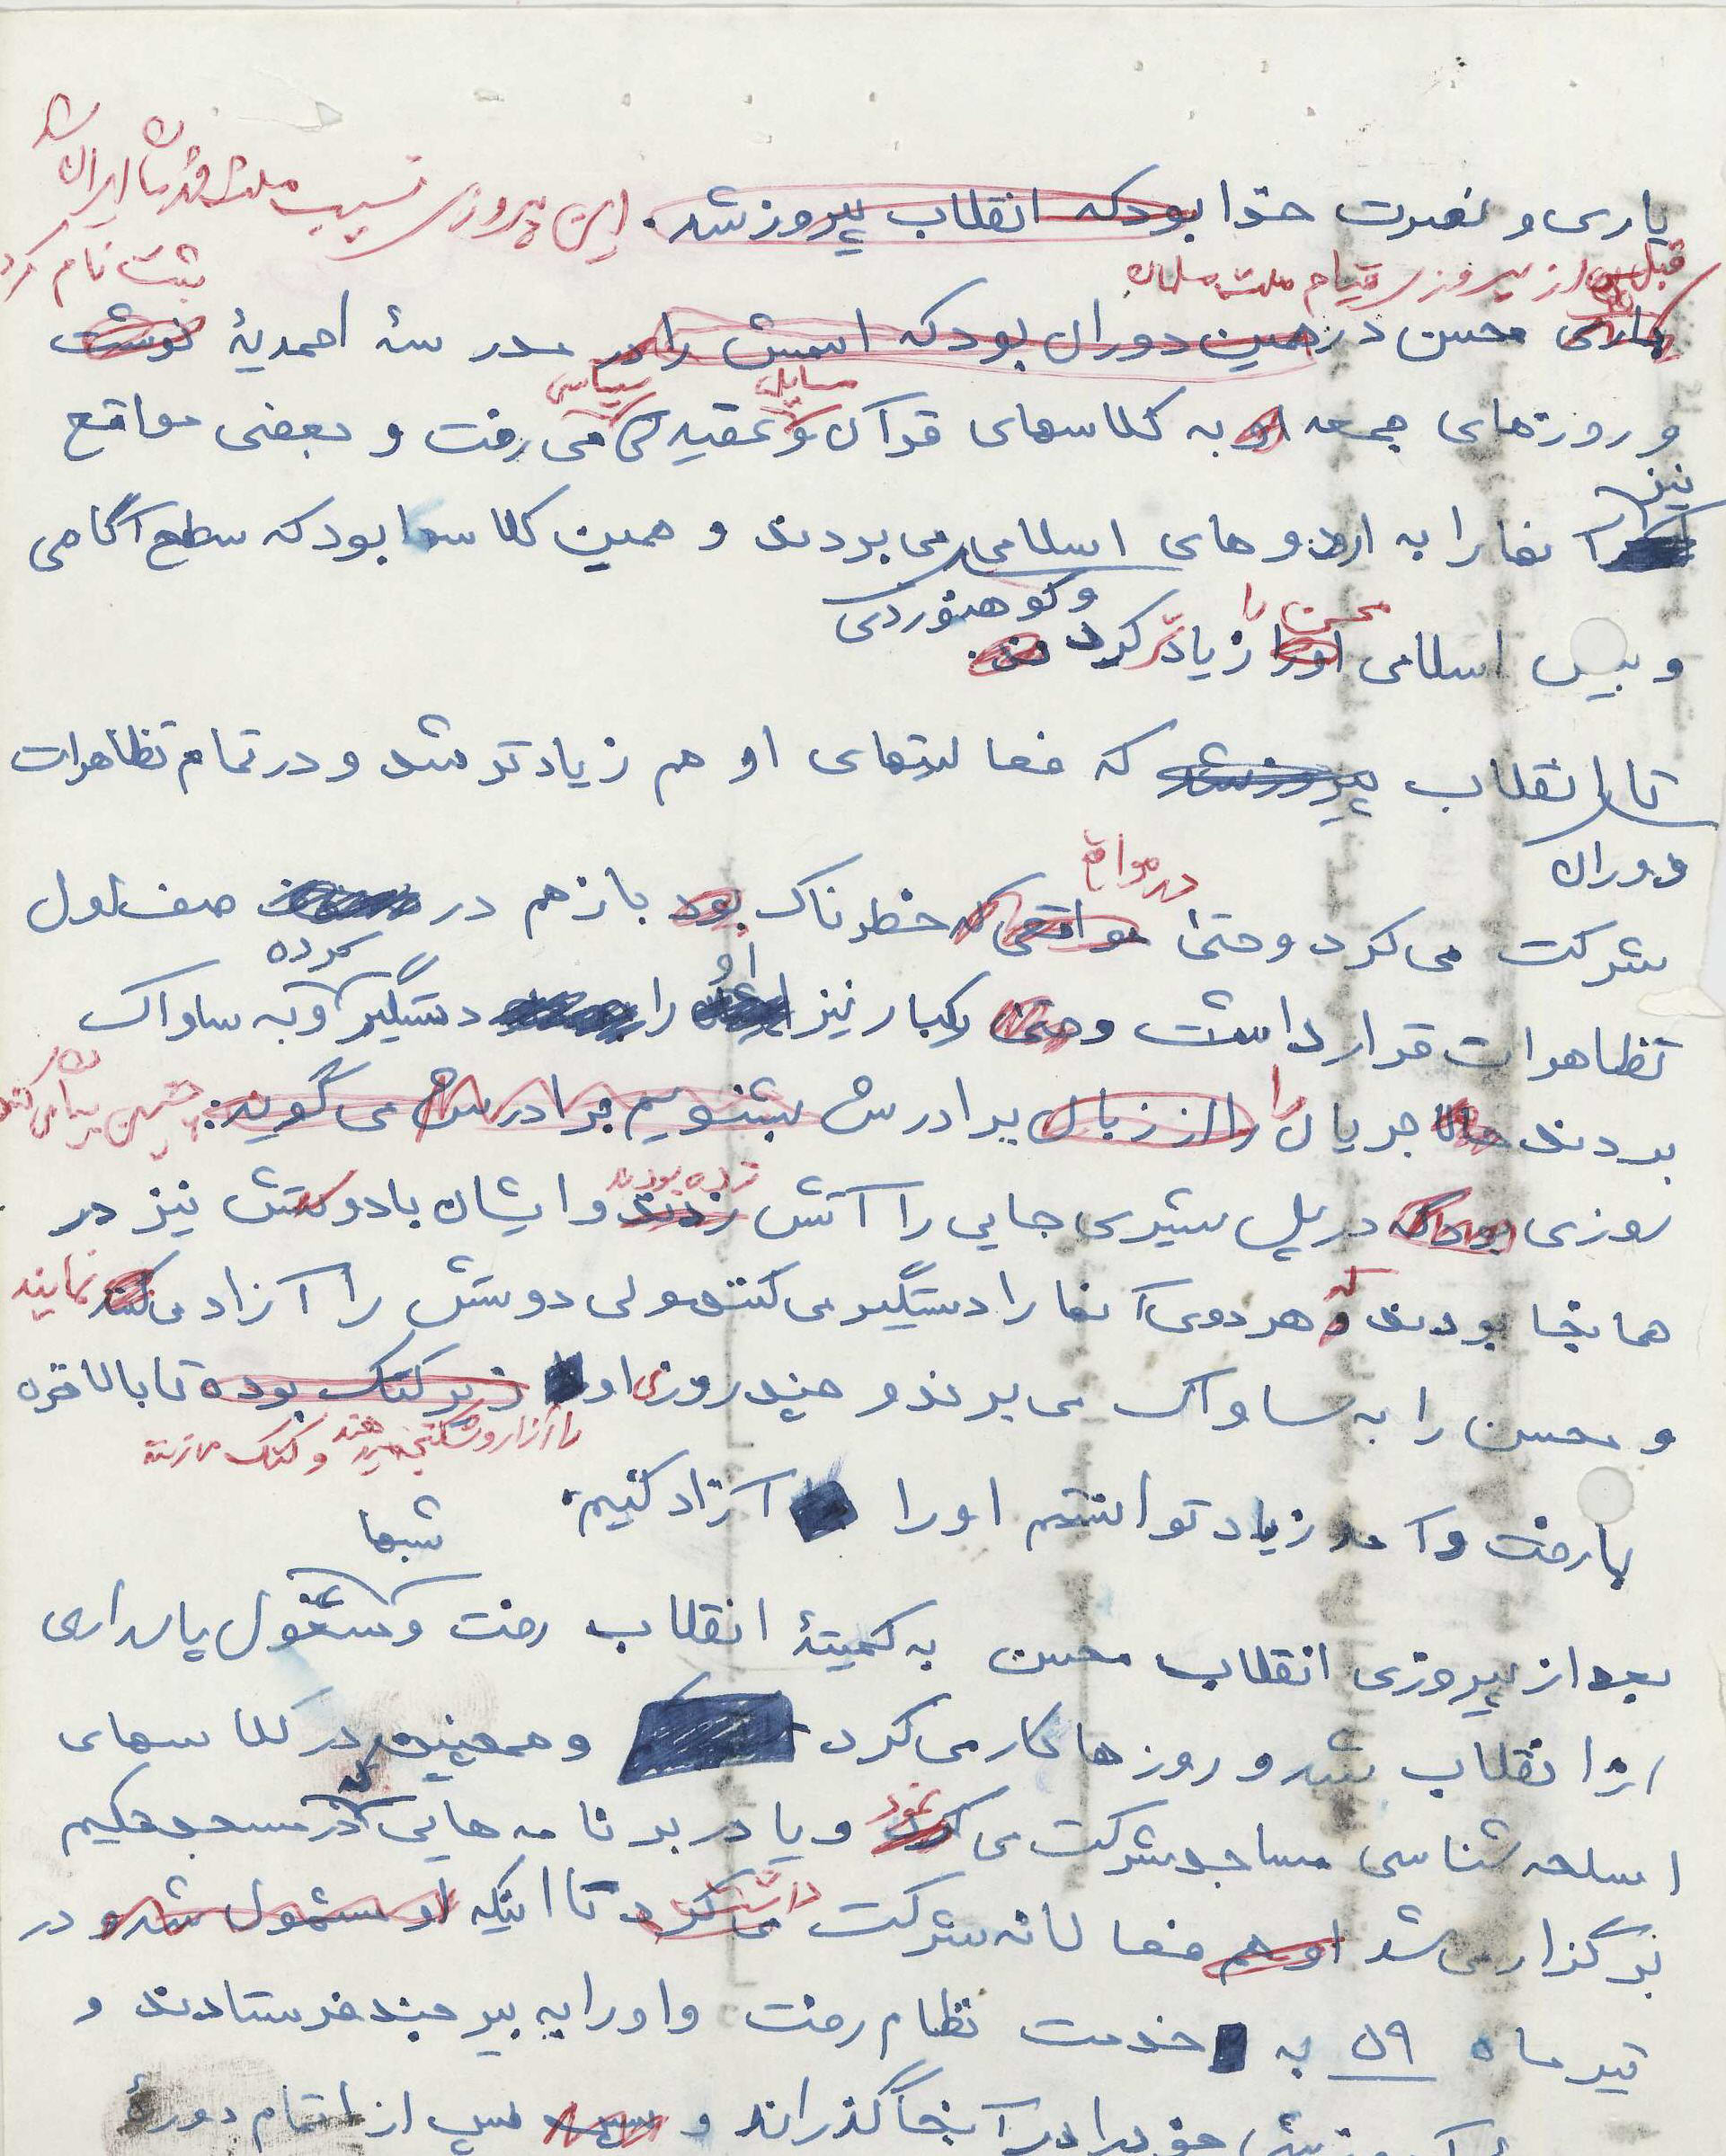 یاری و نصرت خدا بود که انقلاب پیروز شد. این پیروزی نصیب ملت قهرمان ایران شد
قبل از پیروزی قیام ملت مسلمان
ثبت نام کرد
محسن در همین دوران بود که اسمش را در مدرسهٔ احمدیهٔ نوشت
مسایل سیاسی
و روزهای جمعه او به کلاسهای قرآن و عقیدتی می رفت و بعضی مواقع
نیز
آنها را به اردوهای اسلامی می بردند و همین کلاسها بود که سطح آگاهی
و کوهنوردی
محسن را
و بینش اسلامی او را زیادتر کرد
تا انقلاب پیروز شد که فعالیتهای او هم زیادتر شد و در تمام تظاهرات
دوران
در مواقع
شرکت می کرد و حتی مواقعی که خطرناک بود باز هم در صف اول
کرده
او
تظاهرات قرار داشت و حتی یکبار نیز را دستگیر و به ساواک
بردند حالا جریان را از زبان برادرش بشنویم برادرش می گوید:
زده بودند
روزی در پل شیری جایی را آتش زدند و ایشان با دوستش نیز در
که
همانجا بودند و هر دوی آنها را دستگیر می کنند ولی دوستش را آزاد می کنند نمایند
و محسن را به ساواک می برند و چند روزی او زیر کتک بوده تا بالاخره
را آزار و شکنجه میدهند و کتک می زنند
با رفت و آمد زیاد توانستیم او را آزاد کنیم.
شبها
بعد از پیروزی انقلاب محسن به کمیتهٔ انقلاب رفت و مشغول پاسداری
از انقلاب شد و روزها کار می کرد و همچنین در کلاسهای
که
نمود
اسلحه شناسی مساجد شرکت می کرد و یا در برنامه هایی در مسجد حکیم
داشت
برگزار می شد او هم فعالانه شرکت می کرد تا اینکه او مشمول شد و در
تیر ماه ۵۹ به خدمت نظام رفت و او را به بیرجند فرستادند و
خود را در آنجا گذراند و پس از اتمام دورهٔ